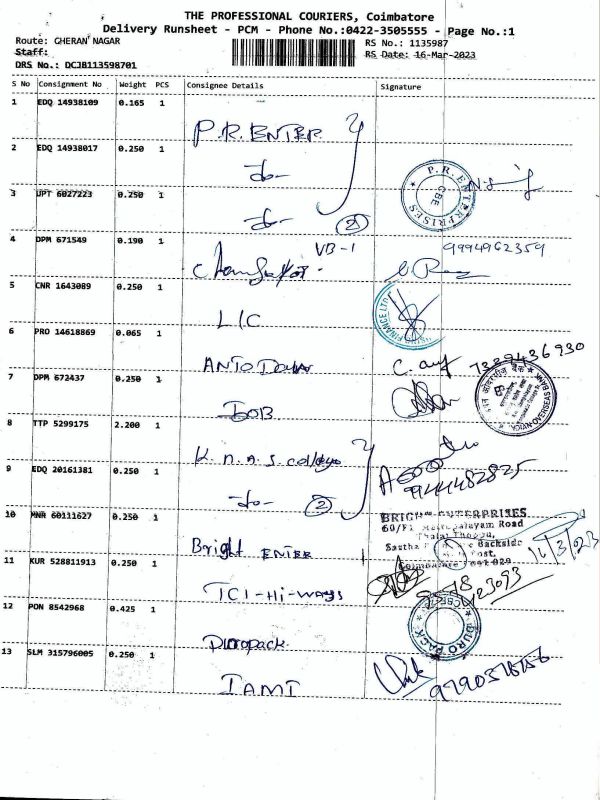 THE PROFESSIONAL COURIERS, Coimbatore
Delivery Runsheet - PCM - Phone No.:0422-3505555 - Page No.:1
Route: GHERAN NAGAR RS No.: 1135987
Staff: RS Date: 16-Mar-2023
DRS No.: DCJB113598701
S No Consignment No Weight PCS Consignee Details Signature
1 EDQ 14938109 0.165 1 P.R. ENTER
2 EDQ 14938017 0.250 1 -do-
P.R. ENTERPRISES
CBE
3 UPT 6027223 0.250 1 -do- 2
4 DPM 671549 0.190 1 VB-1 9994962359
5 CNR 1643089 0.250 1 LIC
FINANCE LTD
6 PRO 14618869 0.065 1 ANTO 7339436930
7 DPM 672437 0.250 1 IOB
INDIAN OVERSEAS BANK
8 TTP 5299175 2.200 1 K.N.A.S. college
9 EDQ 20161381 0.250 1 -do- 2 9444482825
10 MNR 60111627 0.250 1 Bright ENTER
BRIGHT ENTERPRISES
Road
Backside
Post.
16/3/23
11 KUR 528811913 0.250 1 TCI-Hi-ways
12 PON 8542968 0.425 1 Duropack
DURO PACK
13 SLM 315796005 0.250 1 IAMI